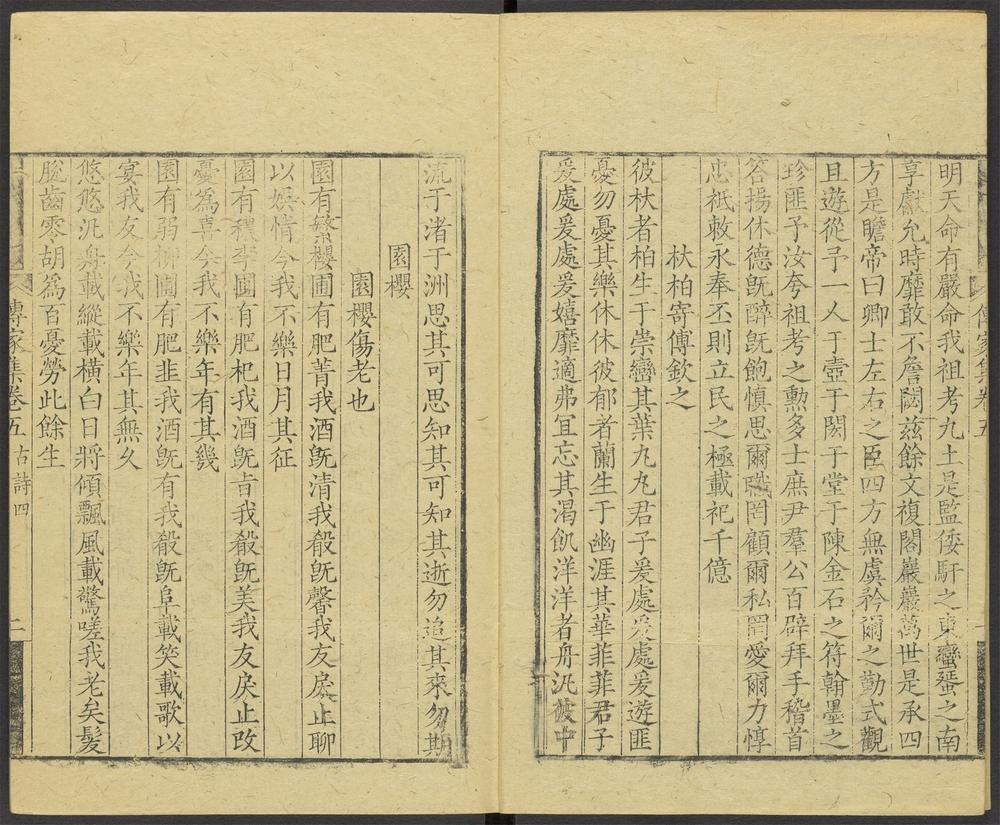 明天命有嚴命我祖考九土是監倭馯之東蠻蜑之南
享獻允時靡敢不詹閎茲餘文複閣巖巖萬世是承四
方是瞻帝曰卿士左右之臣四方無虞矜爾之勤式觀
且遊從予一人于壼于閎于堂于陳金石之符翰墨之
珍匪予汝夸祖考之勳多士庶尹羣公百辟拜手稽首
荅揚休德旣醉旣飽慎思爾職罔顧爾私罔愛爾力惇
忠祗敕永奉丕則立民之極載祀千億
杕柏寄傅欽之
彼杕者柏生于崇巒其葉九九君子爰處爰處爰遊匪
憂勿憂其樂休休彼郁者蘭生于幽涯其華菲菲君子
爰處爰處爰嬉靡適弗冝忘其渴飢洋洋者舟汎彼中
傳家集卷五
流于渚于洲思其可思知其可知其逝勿追其來勿期
園櫻
園櫻傷老也
園有繁櫻圃有肥菁我酒旣清我殽旣馨我友戾止聊
以娛情今我不樂日月其征
園有穠李圃有肥杞我酒旣旨我殽旣美我友戾止改
憂爲喜今我不樂年有其幾
園有弱桃圃有肥韭我酒旣有我殽旣阜載笑載歌以
宴我友今我不樂年其無久
悠悠汎舟載縱載橫白日將傾飄風載驚嗟我老矣髮
脫齒零胡爲百憂勞此餘生
傳家集卷五 古詩四 二